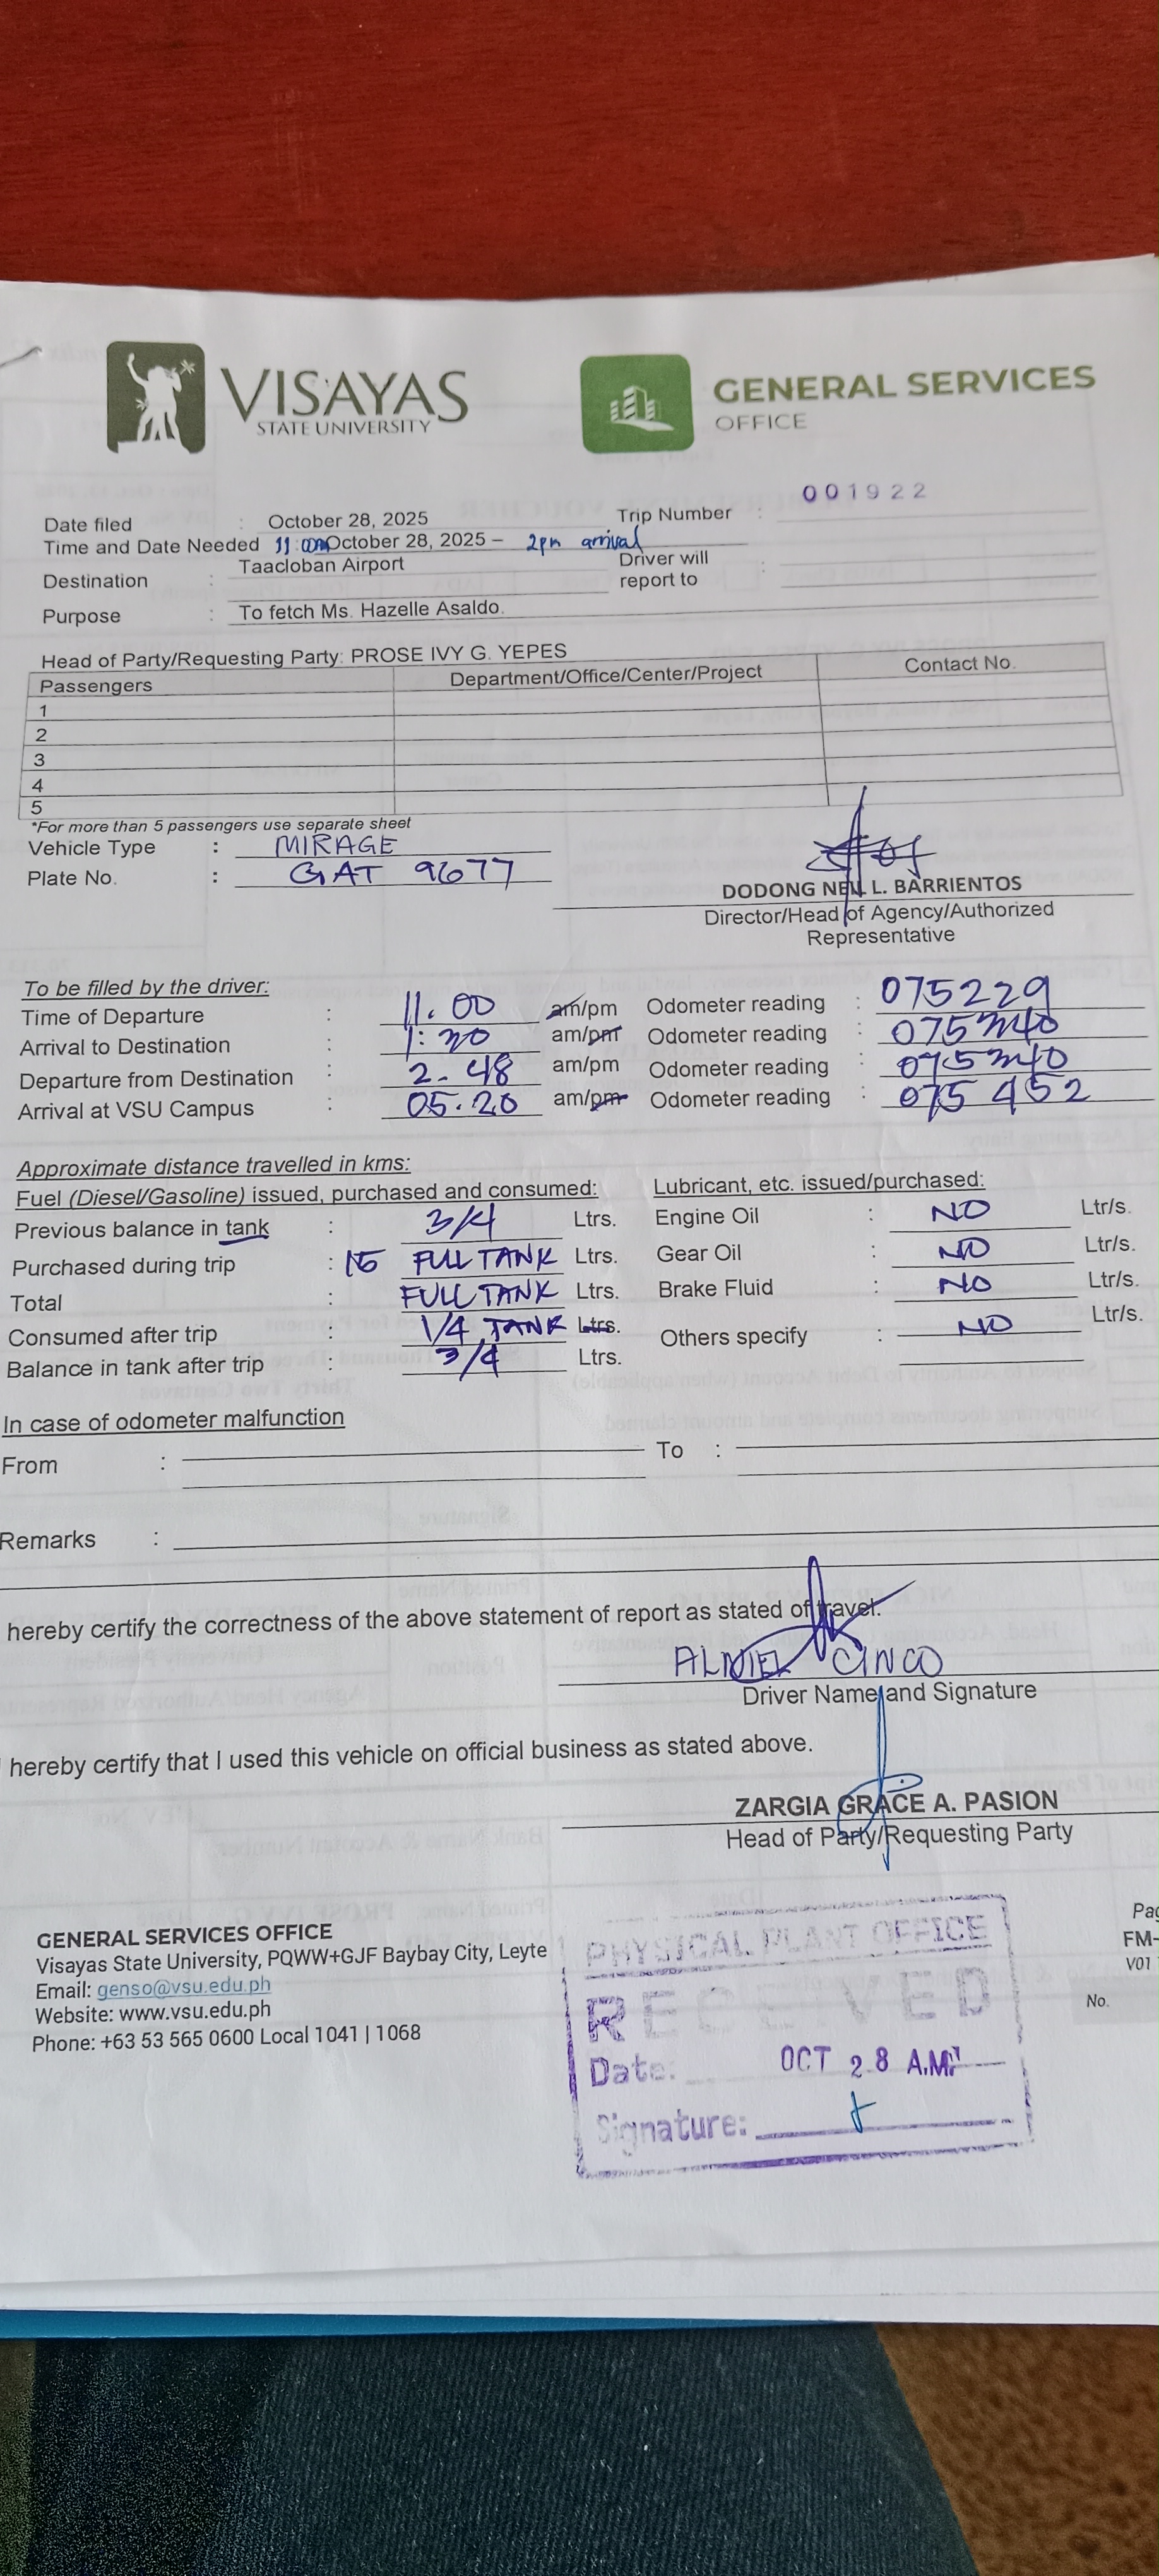 VISAYAS
STATE UNIVERSITY
GENERAL SERVICES
OFFICE
001922
Date filed : October 28, 2025 Trip Number :
Time and Date Needed 11:00am October 28, 2025 – 2pm arrival
Destination : Taacloban Airport Driver will report to :
Purpose : To fetch Ms. Hazelle Asaldo.
Head of Party/Requesting Party: PROSE IVY G. YEPES
Passengers Department/Office/Center/Project Contact No.
1
2
3
4
5
*For more than 5 passengers use separate sheet
Vehicle Type : MIRAGE
Plate No. : GAT 9677
DODONG NEIL L. BARRIENTOS
Director/Head of Agency/Authorized
Representative
To be filled by the driver:
Time of Departure : 11.00 am/pm Odometer reading : 075229
Arrival to Destination : 1:30 am/pm Odometer reading : 075340
Departure from Destination : 2.48 am/pm Odometer reading : 075340
Arrival at VSU Campus : 05.20 am/pm Odometer reading : 075 452
Approximate distance travelled in kms:
Fuel (Diesel/Gasoline) issued, purchased and consumed: Lubricant, etc. issued/purchased:
Previous balance in tank : 3/4 Ltrs. Engine Oil : NO Ltr/s.
Purchased during trip : FULL TANK Ltrs. Gear Oil : NO Ltr/s.
Total : FULL TANK Ltrs. Brake Fluid : NO Ltr/s.
Consumed after trip : 1/4 TANK Ltrs. Others specify : NO Ltr/s.
Balance in tank after trip : 3/4 Ltrs.
In case of odometer malfunction
From : To :
Remarks :
hereby certify the correctness of the above statement of report as stated of travel.
CINCO
Driver Name and Signature
I hereby certify that I used this vehicle on official business as stated above.
ZARGIA GRACE A. PASION
Head of Party/Requesting Party
GENERAL SERVICES OFFICE
Visayas State University, PQWW+GJF Baybay City, Leyte
Email: genso@vsu.edu.ph
Website: www.vsu.edu.ph
Phone: +63 53 565 0600 Local 1041 | 1068
PHYSICAL PLANT OFFICE
RECEIVED
Date: OCT 28 A.M.
Signature:
Pag
FM-
V01
No.